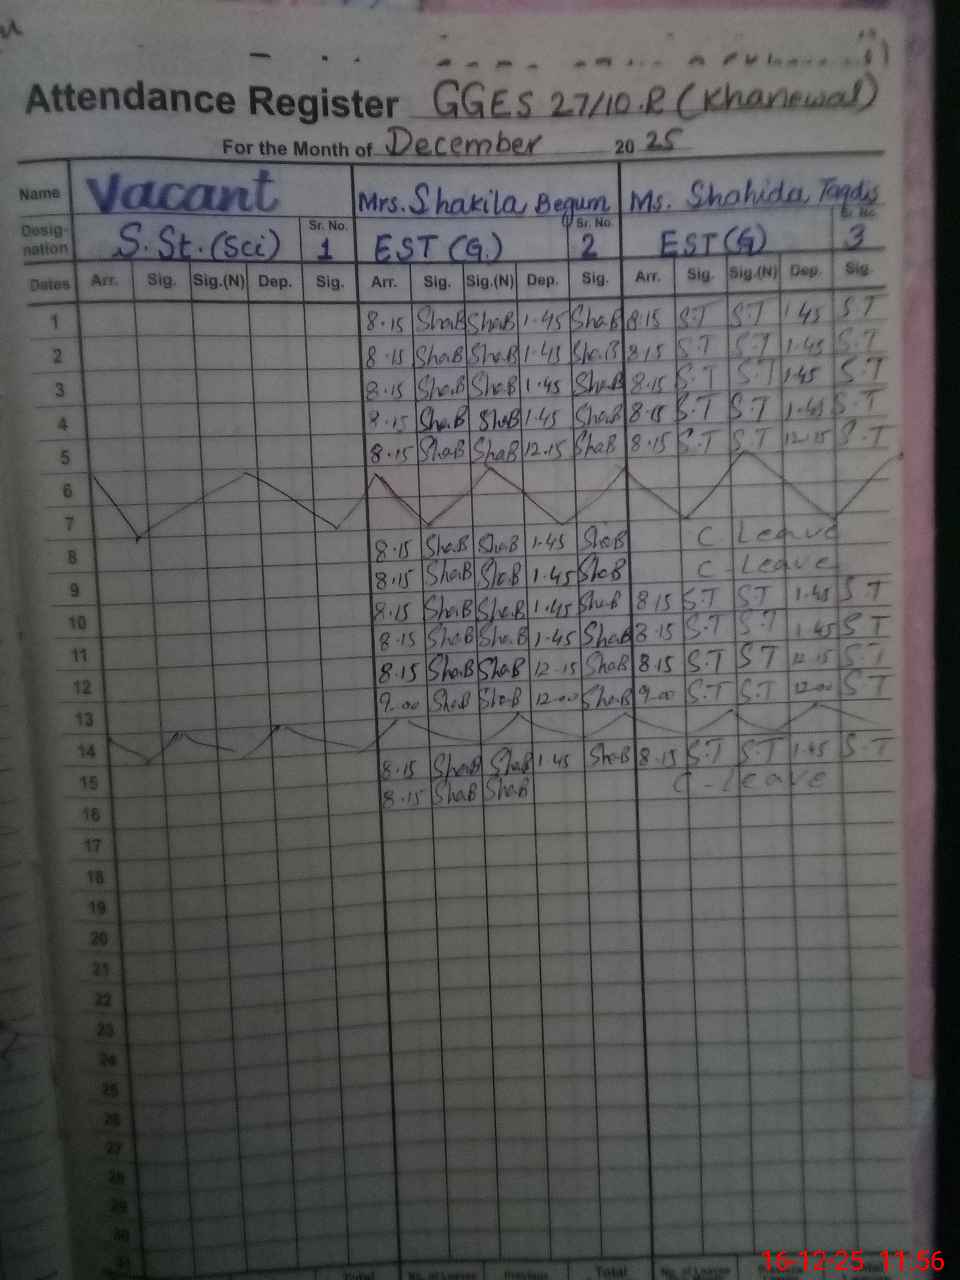 Attendance Register GGES 27/10.R (Khanewal)
For the Month of December 2025
Name Vacant Mrs. Shakila Begum Ms. Shahida Taqdis
Desig-nation S.St.(Sci) Sr. No. 1 EST (G.) Sr. No. 2 EST (G) Sr. No. 3
Dates Arr. Sig. Sig.(N) Dep. Sig. Arr. Sig. Sig.(N) Dep. Sig. Arr. Sig. Sig.(N) Dep. Sig.
1 8.15 ShaB ShaB 1.45 ShaB 8.15 S.T S.T 1.45 S.T
2 8.15 ShaB ShaB 1.45 ShaB 8.15 S.T S.T 1.45 S.T
3 8.15 ShaB ShaB 1.45 ShaB 8.15 S.T S.T 1.45 S.T
4 8.15 ShaB ShaB 1.45 ShaB 8.15 S.T S.T 1.45 S.T
5 8.15 ShaB ShaB 12.15 ShaB 8.15 S.T S.T 12.15 S.T
6
7
8 8.15 ShaB ShaB 1.45 ShaB C Leave
9 8.15 ShaB ShaB 1.45 ShaB C. Leave
10 8.15 ShaB ShaB 1.45 ShaB 8.15 S.T S.T 1.45 S.T
11 8.15 ShaB ShaB 1.45 ShaB 8.15 S.T S.T 1.45 S T
12 8.15 ShaB ShaB 12.15 ShaB 8.15 S.T S T 12.15 S.T
13 9.00 ShaB ShaB 12.00 ShaB 9.00 S.T S.T 12.00 S T
14
15 8.15 ShaB ShaB 1.45 ShaB 8.15 S.T S.T 1.45 S.T
16 8.15 ShaB ShaB C - Leave
17
18
19
20
21
22
23
24
25
26
27
28
29
30
31
Total No. of Leaves Previous Total No. of Leaves
16-12-25 11:56